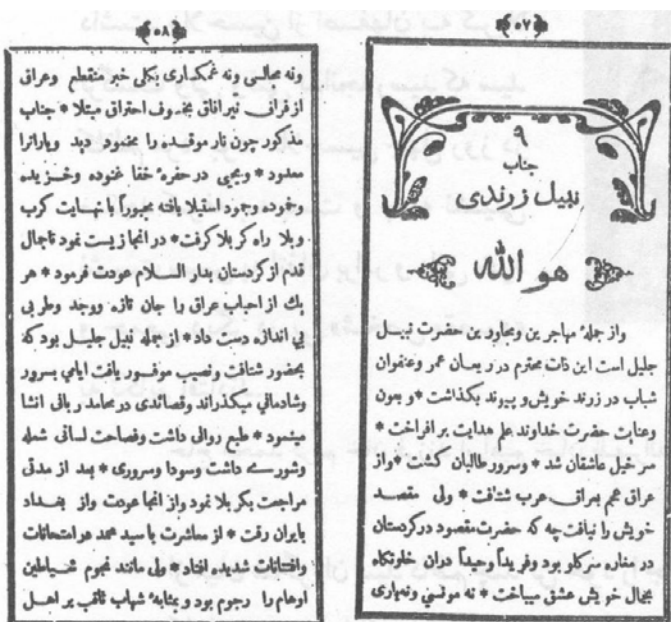 ﴿٥٧﴾
٩
جناب
نبیل زرندی
هو الله
واز جملهٔ مهاجرین ومجاورین حضرت نبیل
جلیل است این ذات محترم در ریعان عمر وعنفوان
شباب در زرند خویش و پیوند بگذاشت * و بعون
وعنایت حضرت خداوند علم هدایت بر افراخت *
سر خیل عاشقان شد * وسرور طالبان گشت * واز
عراق عجم بعراق عرب شتافت * ولی مقصد
خویش را نیافت چه که حضرت مقصود در کردستان
در مغاره سرکلو بود وفریداً وحیداً دران خلوتگاه
بجمال خویش عشق میباخت * نه مونسی ونه یاری
﴿٥٨﴾
ونه مجالسی ونه غمگساری بکلی خبر منقطع وعراق
از فراق نیر افاق بخسوف احتراق مبتلا * جناب
مذکور چون نار موقده را مخمود دید ویارانرا
معدود * ویحیی در حفرهٔ خفا غنوده وخزیده
وخموده وجمود استیلا یافته مجبوراً با نهایت کرب
وبلا راه کربلا گرفت * در انجا زیست نمود تا جمال
قدم از کردستان بدار السلام عودت فرمود * هر
یك از احباب عراق را جان تازه ووجد وطربی
بی اندازه دست داد * از جمله نبیل جلیل بود که
بحضور شتافت ونصیب موفور یافت ایامی بسرور
وشادمانی میگذراند وقصائدی در محامد ربانی انشا
مینمود * طبع روانی داشت وفصاحت لسانی شعله
وشوری داشت وسودا وسروری * بعد از مدتی
مراجعت بکربلا نمود واز انجا عودت واز بغداد
بایران رفت * از معاشرت با سید محمد در امتحانات
وافتتانات شدیده افتاد * ولی مانند نجوم شیاطین
اوهام را رجوم بود و بمثابهٔ شهاب ثاقب بر اهل